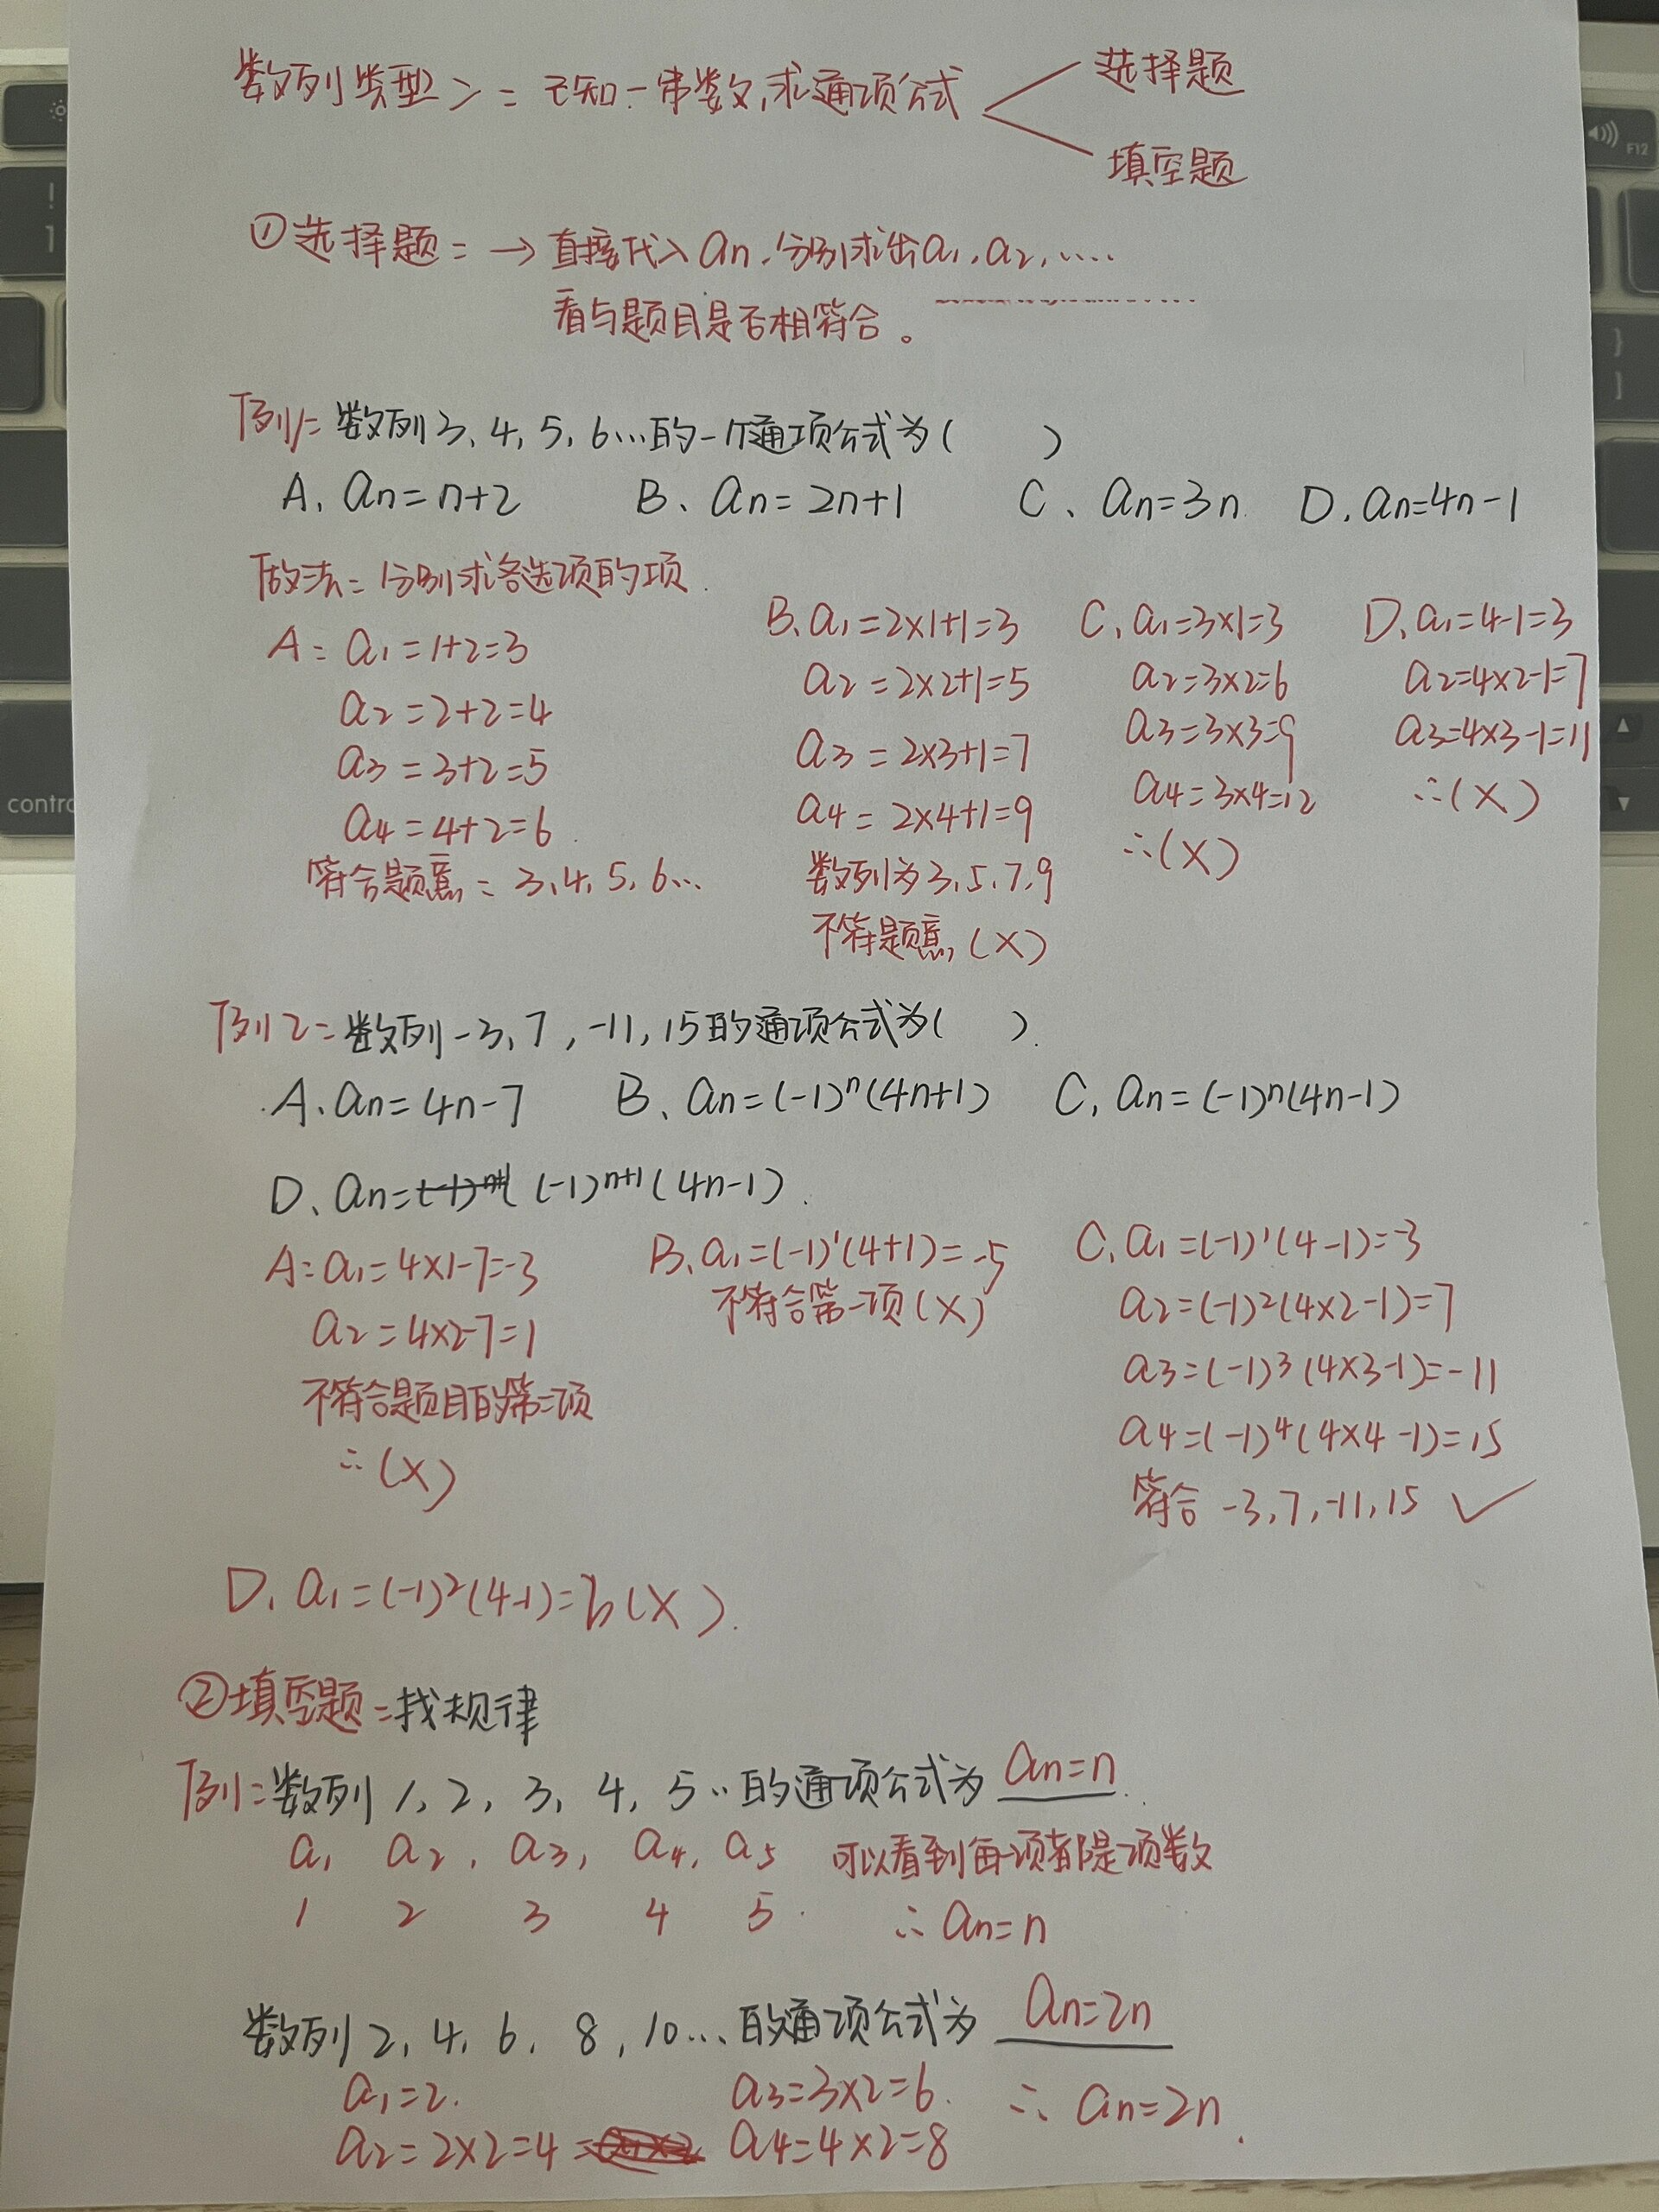 数列类型二：已知一串数,求通项公式
选择题
填空题
①选择题：→直接代入an,分别求出a1,a2,....
看与题目是否相符合。
例1：数列3,4,5,6...的一个通项公式为(　)
A. an=n+2　B、an=2n+1　C、an=3n　D.an=4n-1
做法：分别求各选项的项.
A：a1=1+2=3
a2=2+2=4
a3=3+2=5
a4=4+2=6
符合题意：3,4,5,6...
B、a1=2×1+1=3
a2=2×2+1=5
a3=2×3+1=7
a4=2×4+1=9
数列为3,5,7,9
不符题意,(×)
C、a1=3×1=3
a2=3×2=6
a3=3×3=9
a4=3×4=12
∴(×)
D、a1=4-1=3
a2=4×2-1=7
a3=4×3-1=11
∴(×)
例2：数列-3,7,-11,15的通项公式为(　).
A、an=4n-7　B、an=(-1)ⁿ(4n+1)　C、an=(-1)ⁿ(4n-1)
D、an=(-1)ⁿ⁺¹(4n-1).
A：a1=4×1-7=-3
a2=4×2-7=1
不符合题目的第二项
∴(×)
B、a1=(-1)¹(4+1)=-5
不符合第一项(×)
C、a1=(-1)¹(4-1)=-3
a2=(-1)²(4×2-1)=7
a3=(-1)³(4×3-1)=-11
a4=(-1)⁴(4×4-1)=15
符合 -3,7,-11,15 ✓
D、a1=(-1)²(4-1)=3(×).
②填空题：找规律
例1：数列1,2,3,4,5..的通项公式为 an=n.
a1 a2, a3, a4, a5 可以看到每一项都是项数
1 2 3 4 5. ∴an=n
数列2,4,6,8,10...的通项公式为 an=2n
a1=2.　a3=3×2=6.　∴ an=2n.
a2=2×2=4　a4=4×2=8